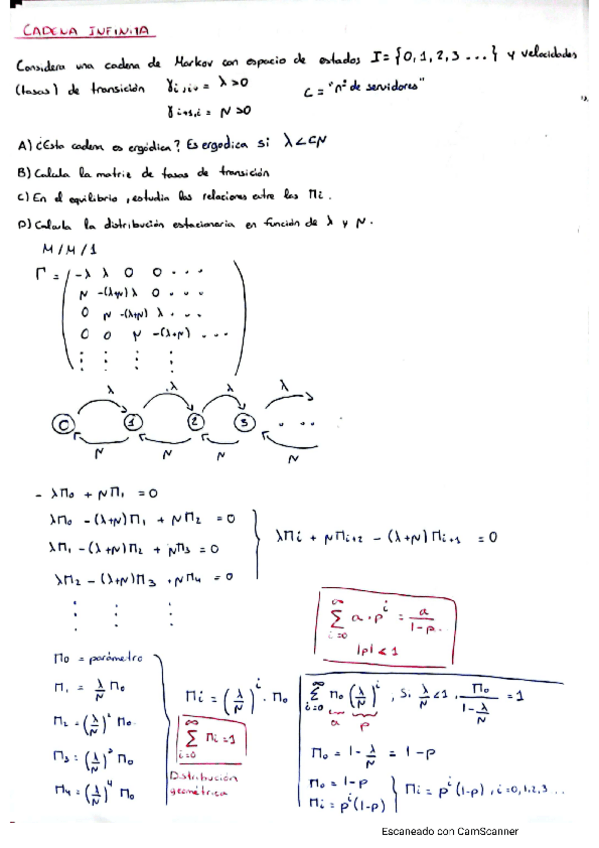 CADENA INFINITA
Considera una cadena de Markov con espacio de estados I = {0, 1, 2, 3 ...} y velocidades
(tasas) de transición γi,i+1 = λ>0 C = "nº de servidores"
γi+1,i = N>0
A) ¿Esta cadena es ergódica? Es ergodica si λ<CN
B) Calcula la matrix de tasas de transición
C) En el equilibrio, estudia las relaciones entre las Πi.
D) Calcula la distribución estacionaria en función de λ y N.
M/M/1
Γ = ( -λ λ 0 0 ...
N -(λ+N) λ 0 ...
0 N -(λ+N) λ ...
0 0 N -(λ+N) ... )
⋮ ⋮ ⋮ ⋮
λ λ λ λ
0 1 2 3 ...
N N N N
- λΠ0 + NΠ1 = 0
λΠ0 - (λ+N)Π1 + NΠ2 = 0
λΠi + NΠi+2 - (λ+N)Πi+1 = 0
λΠ1 - (λ+N)Π2 + NΠ3 = 0
λΠ2 - (λ+N)Π3 + NΠ4 = 0
⋮ ⋮ ⋮
∞ Σ i=0 a·p^i = a/(1-p)
|p| < 1
Π0 = parámetro
Π1 = λ/N Π0
Π2 = (λ/N)² Π0
Π3 = (λ/N)³ Π0
Π4 = (λ/N)⁴ Π0
Πi = (λ/N)^i · Π0
∞ Σ i=0 Πi = 1
Distribución
geométrica
∞ Σ i=0 Π0 (λ/N)^i, Si λ/N < 1, Π0/(1-λ/N) = 1
a p
Π0 = 1 - λ/N = 1-p
Π0 = 1-p
Πi = p^i(1-p)
Πi = p^i(1-p), i=0,1,2,3...
Escaneado con CamScanner